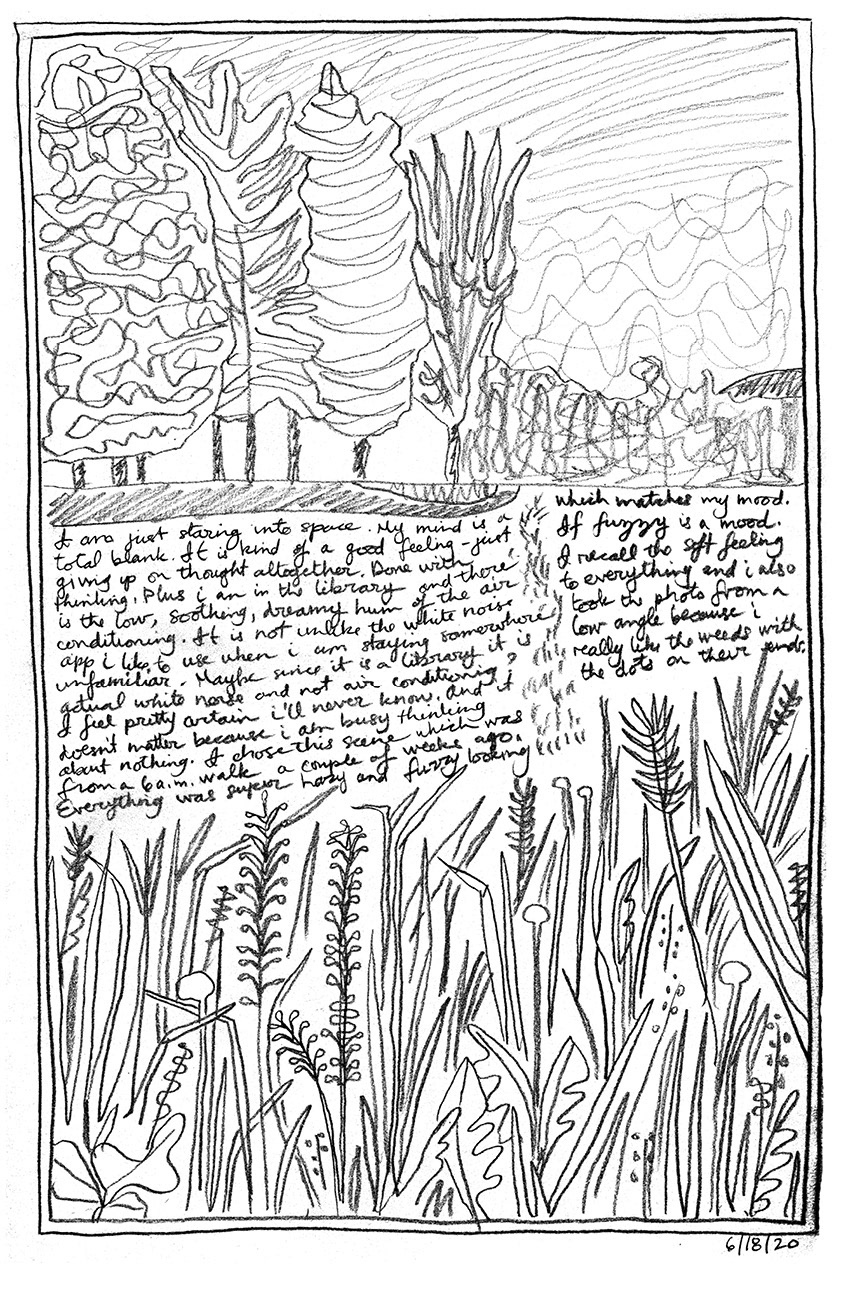 I am just staring into space. My mind is a
total blank. It is kind of a good feeling - just
giving up on thought altogether. Done with
thinking. Plus i am in the library and there
is the low, soothing, dreamy hum of the air
conditioning. It is not unlike the white noise
app i like to use when i am staying somewhere
unfamiliar. Maybe since it is a library it is
actual white noise and not air conditioning,
I feel pretty certain i'll never know. And it
doesn't matter because i am busy thinking
about nothing. I chose this scene which was
from a 6 a.m. walk a couple of weeks ago.
Everything was super hazy and fuzzy looking
which matches my mood.
If fuzzy is a mood.
I recall the soft feeling
to everything and i also
took the photo from a
low angle because i
really like the weeds with
the dots on their ends.
6/18/20